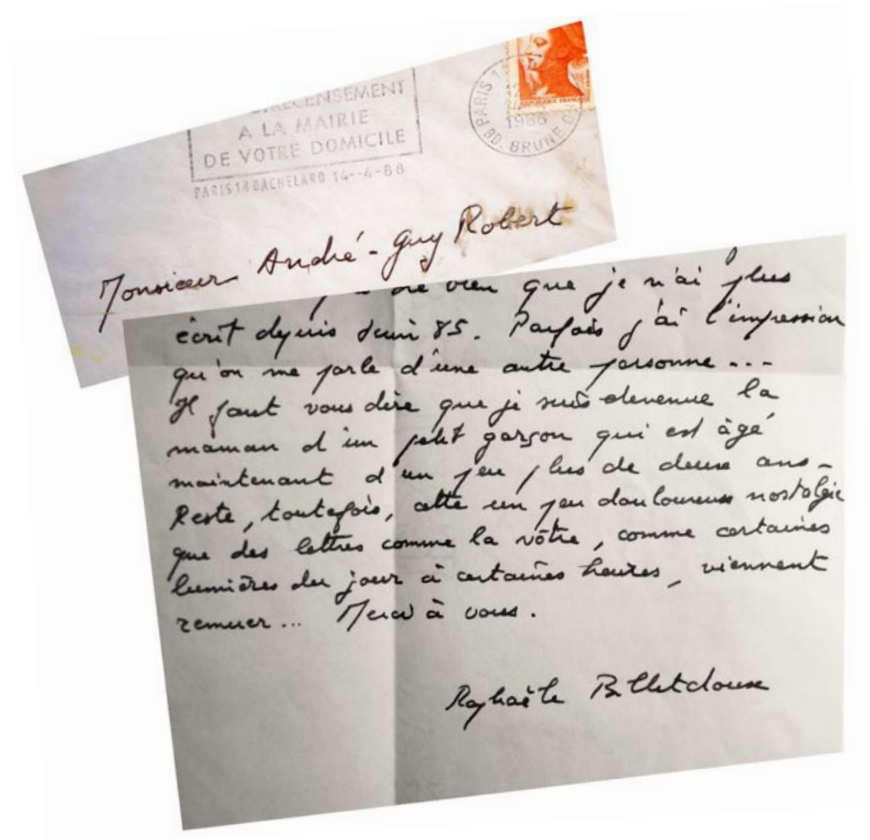 RECENSEMENT
A LA MAIRIE
DE VOTRE DOMICILE
PARIS 14 BACHELARD 14--4-88
PARIS 14
1988
BD. BRUNE
REPUBLIQUE FRANCAISE
Monsieur André-Guy Robert
dire bien que je n'ai plus
écrit depuis Juin 85. Parfois j'ai l'impression
qu'on me parle d'une autre personne...
Il faut vous dire que je suis devenue la
maman d'un petit garçon qui est âgé
maintenant d'un peu plus de deux ans-
Reste, toutefois, cette un peu douloureuse nostalgie
que des lettres comme la vôtre, comme certaines
lumières du jour à certaines heures, viennent
remuer... Merci à vous.
Raphaële Billetdoux